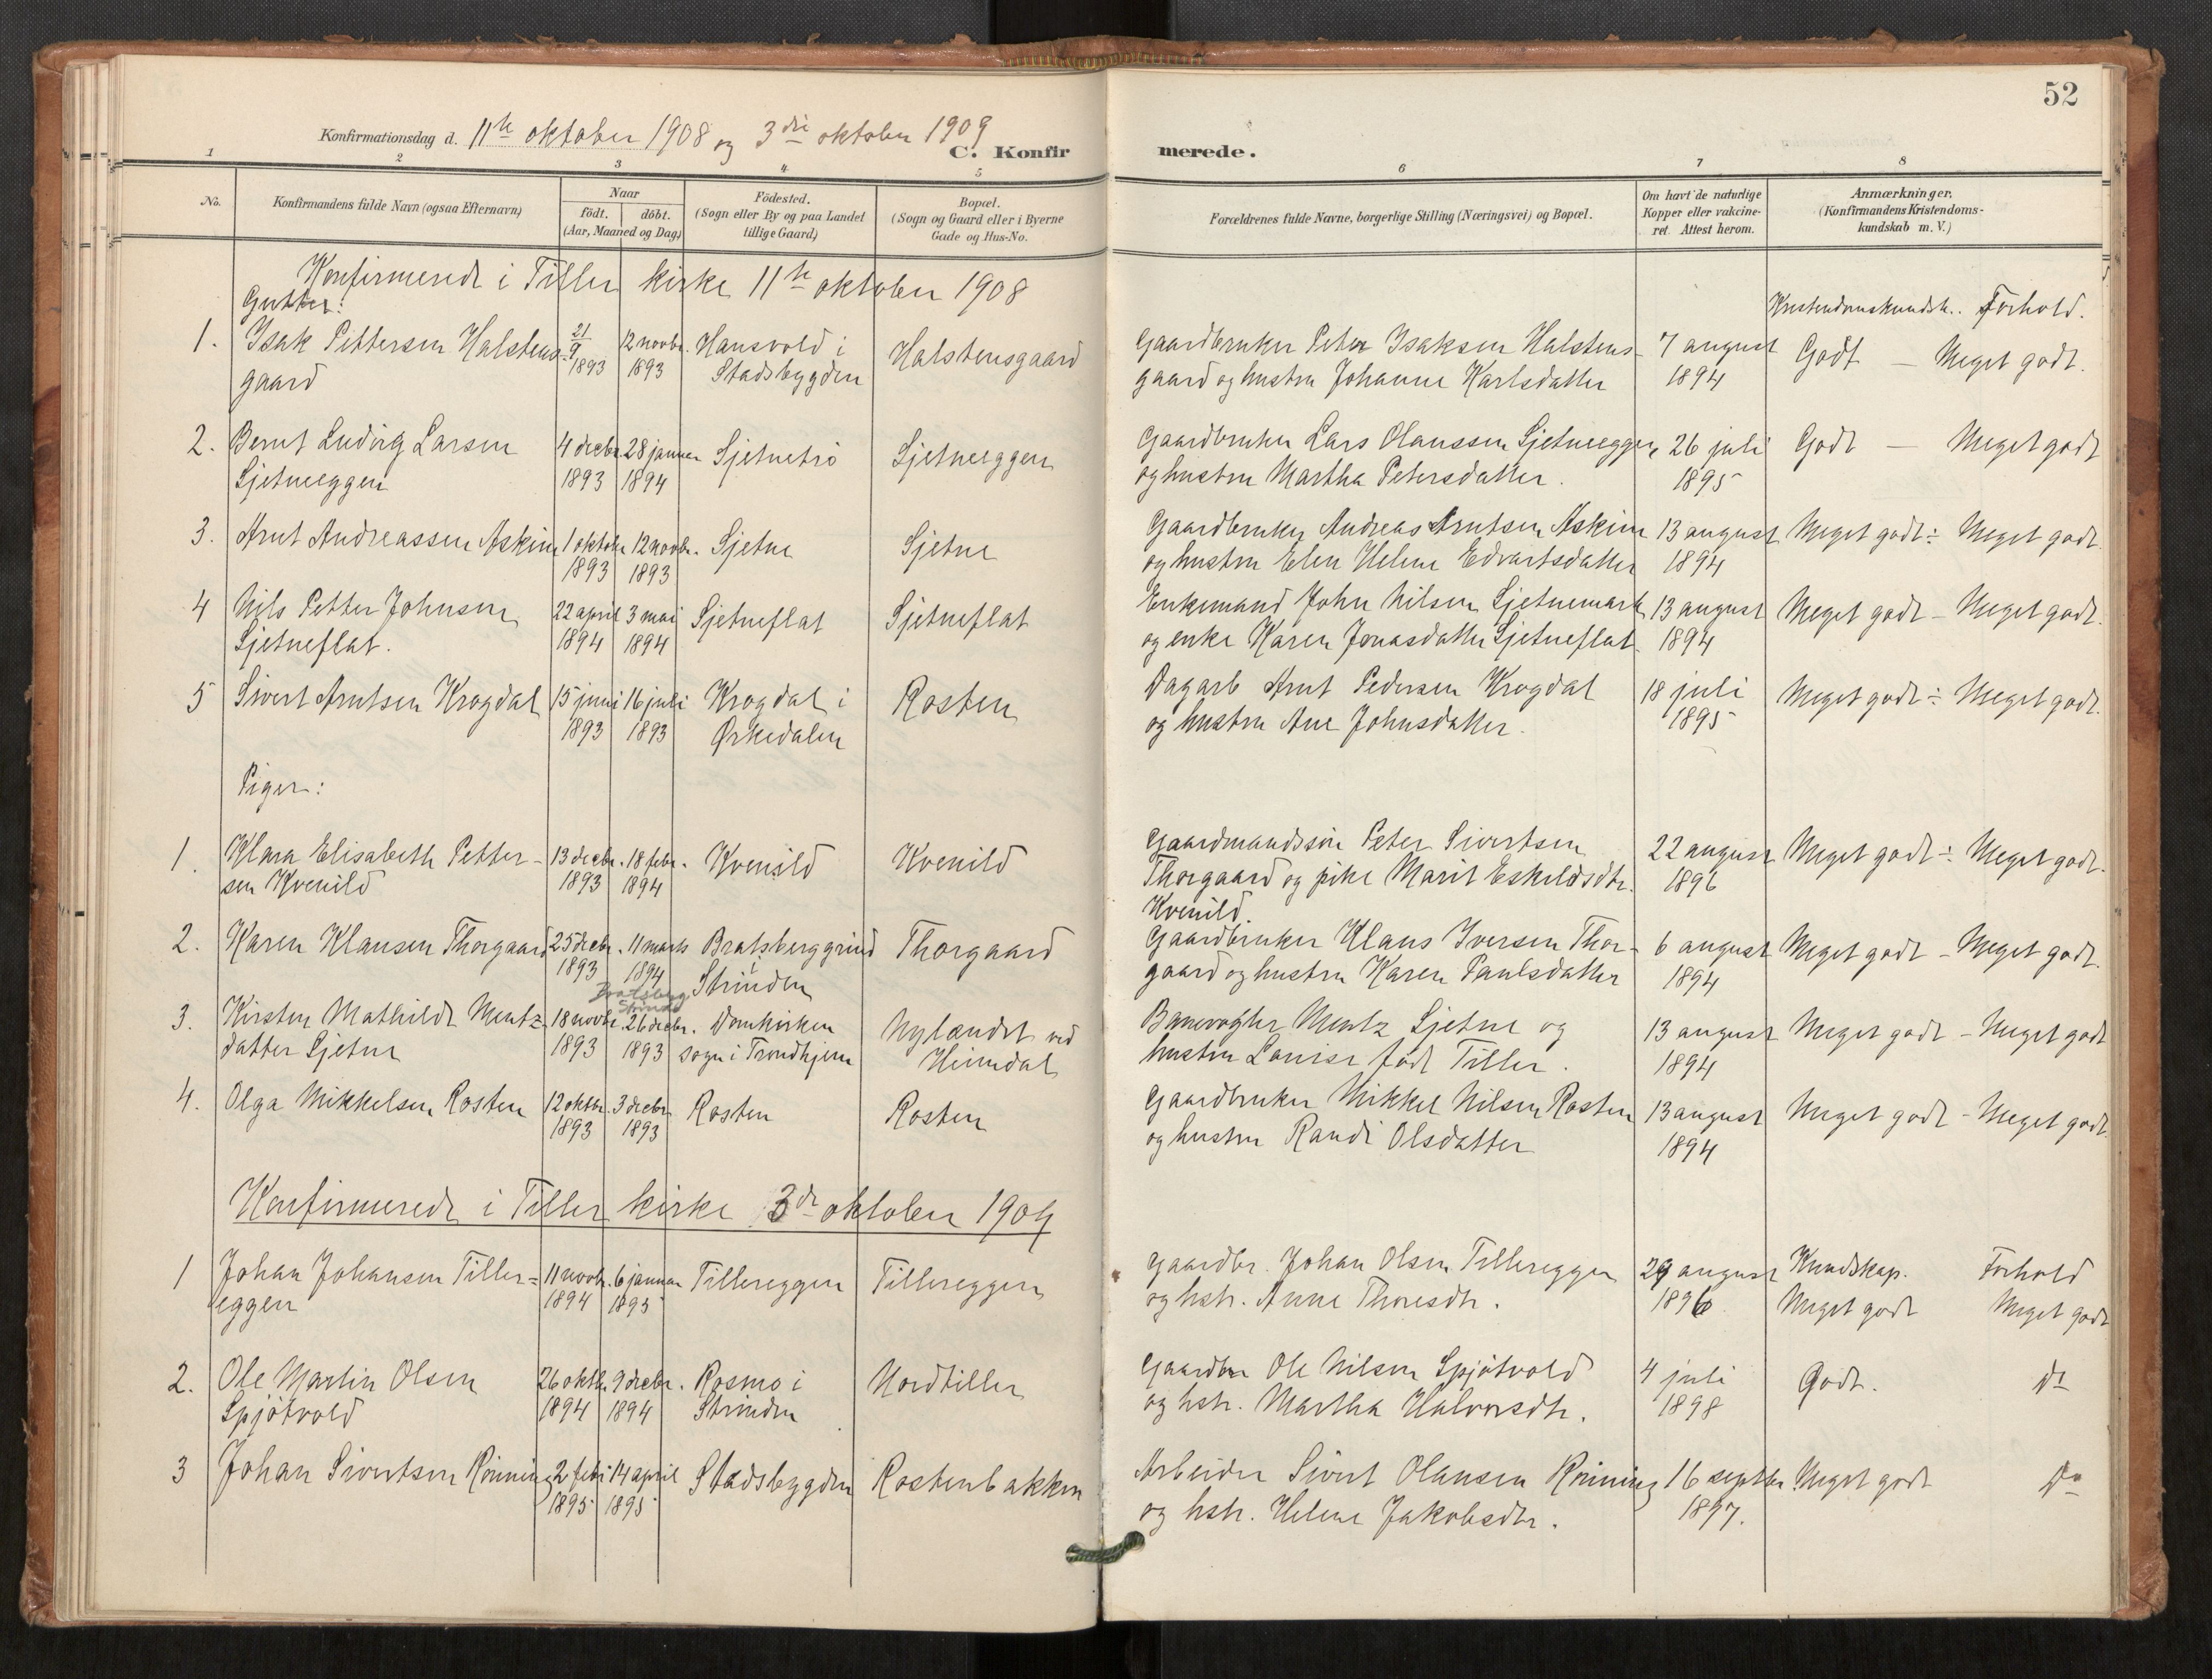 52
Konfirmationsdag d. 11te oktober 1908 og 3die oktober 1909
C. Konfirmerede.
1 2 3 4 5 6 7 8
No.
Konfirmandens fulde Navn (ogsaa Efternavn)
Naar
födt. döbt.
(Aar, Maaned og Dag)
Födested.
(Sogn eller By og paa Landet
tillige Gaard)
Bopæl.
(Sogn og Gaard eller i Byerne
Gade og Hus-No.
Forældrenes fulde Navne, borgerlige Stilling (Næringsvei) og Bopæl.
Om havt de naturlige
Kopper eller vakcine-
ret. Attest herom.
Anmærkninger.
(Konfirmandens Kristendoms-
kundskab m. V.)
Konfirmerede i Tiller kirke 11te oktober 1908
Gutter:
Kristendomskundsk. Forhold.
1. Isak Pettersen Halstens- 21/9 12 novbr. Hansvold i Halstensgaard Gaardbruker Peter Isaksen Halstens- 7 august Godt — Meget godt.
gaard 1893 1893 Stadsbygden gaard og hustru Johanne Karlsdatter 1894
2. Bernt Ludvig Larsen 4 decbr. 28 januar Sjetnetrö Sjetneeggen Gaardbruker Lars Olaussen Sjetneeggen 26 juli Godt — Meget godt
Sjetneeggen 1893 1894 og hustru Martha Petersdatter. 1895
3. Arnt Andreassen Askim 1 oktober 12 novbr. Sjetne Sjetne Gaardbruker Andreas Arntsen Askim 13 august Meget godt ÷ Meget godt
1893 1893 og hustru Elen Helene Edvartsdatter 1894
4 Nils Petter Johnsen 22 april 3 mai Sjetneflat Sjetneflat Enkemand John Nilsen Sjetnemark 13 august Meget godt - Meget godt.
Sjetneflat. 1894 1894 og enke Karen Jonasdatter Sjetneflat. 1894
5 Sivert Arntsen Krogdal 15 juni 16 juli Krogdal i Rosten Dagarb Arnt Pedersen Krogdal 18 juli Meget godt ÷ Meget godt.
1893 1893 Ørkedalen og hustru Ane Johnsdatter. 1895
Piger:
1. Klara Elisabeth Petter- 13 decbr. 18 febr. Kvenild Kvenild Gaardmandssön Peter Sivertsen 22 august Meget godt ÷ Meget godt.
sen Kvenild 1893 1894 Thorgaard og pike Marit Eskeldsdtr. 1896
Kvenild.
2. Karen Klausen Thorgaard 25 decbr. 11 marts Bratsberggrind Thorgaard Gaardbruker Klaus Iversen Thor- 6 august Meget godt - Meget godt.
1893 1894 i Strinden gaard og hustru Karen Paulsdatter 1894
Bratsberg
Strinda
3. Kirsten Mathilde Mentz- 18 novbr. 26 decbr. Domkirken Nylændet ved Banevogter Mentz Sjetne og 13 august Meget godt - Meget godt
datter Sjetne 1893 1893 sogn i Trondhjem Heimdal hustru Louise född Tiller. 1894
4. Olga Mikkelsen Rosten 12 oktbr. 3 decbr. Rosten Rosten Gaardbruker Mikkel Nilsen Rosten 13 august Meget godt - Meget godt.
1893 1893 og hustru Randi Olsdatter 1894
Konfirmerede i Tiller kirke 3de oktober 1909
1 Johan Johansen Tiller= 11 novbr. 6 januar Tillereggen Tillereggen Gaardbr. Johan Olsen Tillereggen 29 august Kundskap. Forhold
eggen 1894 1895 og hstr. Anne Thoresdtr. 1896 Meget godt Meget godt
2. Ole Martin Olsen 26 oktbr. 9 decbr. Rosmo i Nordtiller Gaardbr Ole Nilsen Spjötvold 4 juli Godt. Do
Spjötvold 1894 1894 Strinden og hstr. Martha Halvorsdtr. 1898
3 Johan Sivertsen Rönning 2 febr 14 april Stadsbygden Rostenbakken Arbeider Sivert Olausen Rönning 16 septbr Meget godt Do
1895 1895 og hstr. Helene Jakobsdtr. 1897.